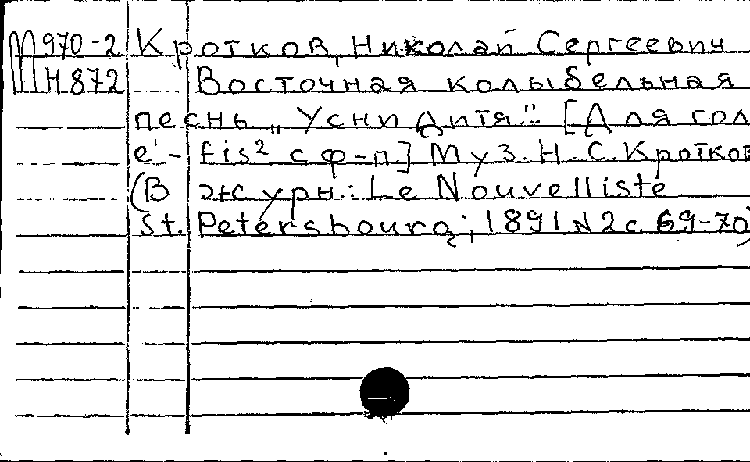 Ш 970-2 Кротков, Николай Сергеевич
Н872 Восточная колыбельная
песнь „Усни дитя". [Для гол.
e' - fis² с ф-п] Муз. Н.С.Кротков
(В журн.: Le Nouvelliste
St. Petersbourg, 1891 N 2 с 69-70)